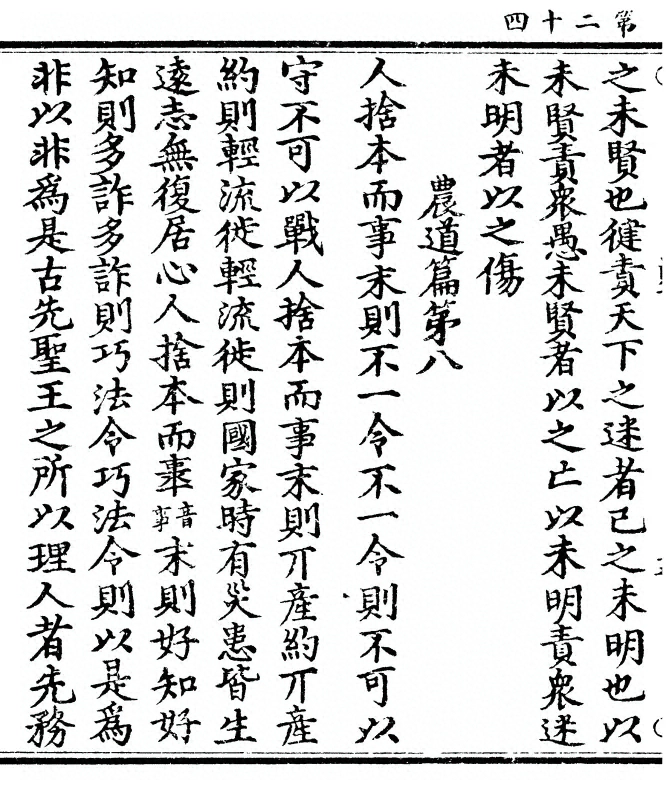 第二十四
之未賢也徤責天下之迷者己之未明也以
未賢責衆愚未賢者以之亡以未明責衆迷
未明者以之傷
農道篇第八
人捨本而事末則不一令不一令則不可以
守不可以戰人捨本而事末則丌產約丌產
約則輕流徙輕流徙則國家時有災患皆生
遠志無復居心人捨本而音事末則好知好
知則多詐多詐則巧法令巧法令則以是爲
非以非爲是古先聖王之所以理人者先務